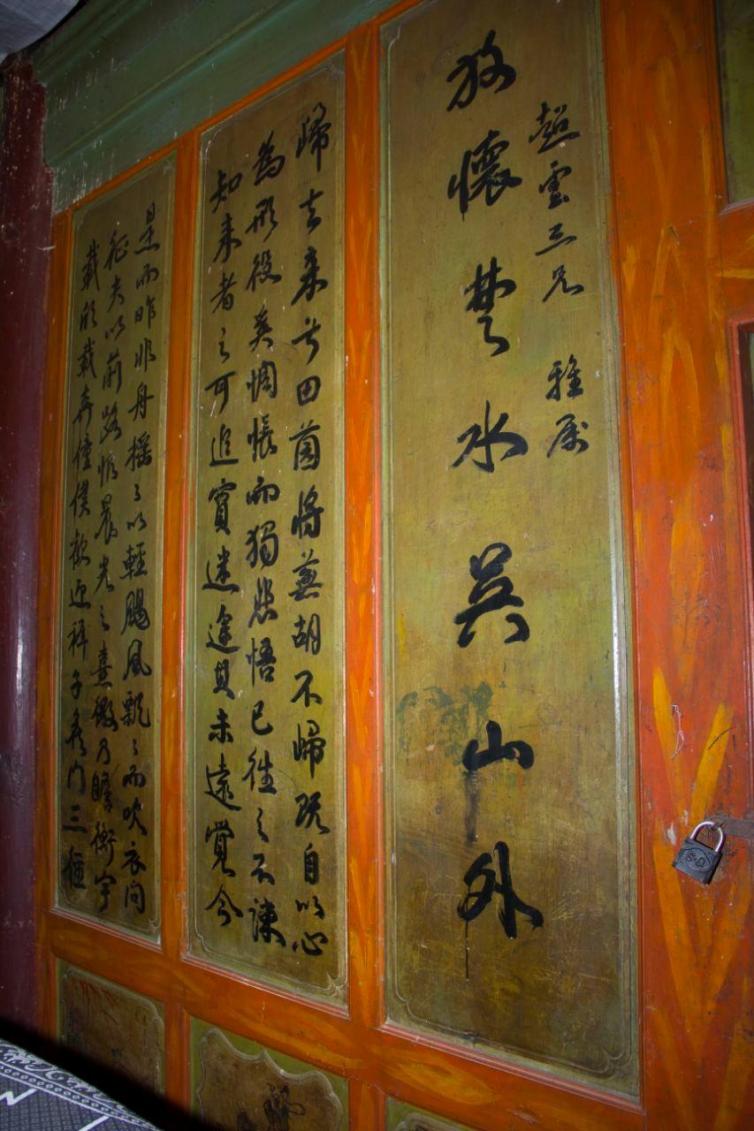 趙雲三兄 雅屬
放懷楚水吳山外
歸去来兮田園將蕪胡不歸既自以心
為形役奚惆悵而獨悲悟已往之不諫
知来者之可追實迷途其未遠覺今
是而昨非舟搖々以輕颺風飄々而吹衣问
征夫以前路恨晨光之熹微乃瞻衡宇
載欣載奔僮僕歡迎稚子候门三徑